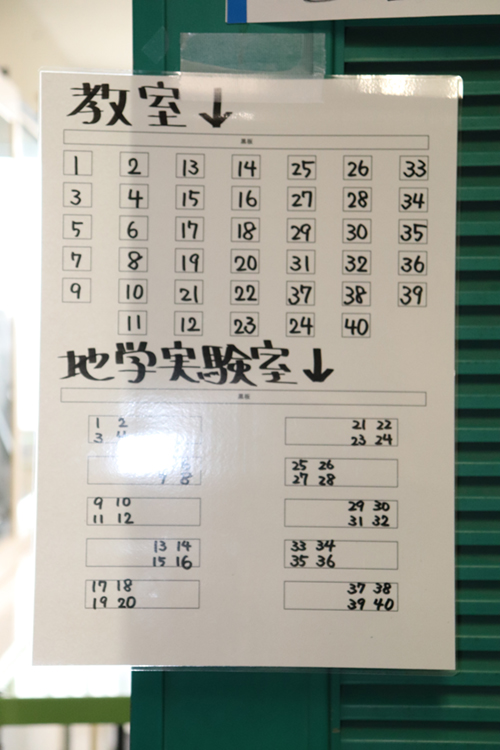 教室↓
黒板
1 2 13 14 25 26 33
3 4 15 16 27 28 34
5 6 17 18 29 30 35
7 8 19 20 31 32 36
9 10 21 22 37 38 39
11 12 23 24 40
地学実験室↓
黒板
1 2 21 22
3 23 24
25 26
8 27 28
9 10 29 30
11 12 31 32
13 14 33 34
15 16 35 36
17 18 37 38
19 20 39 40